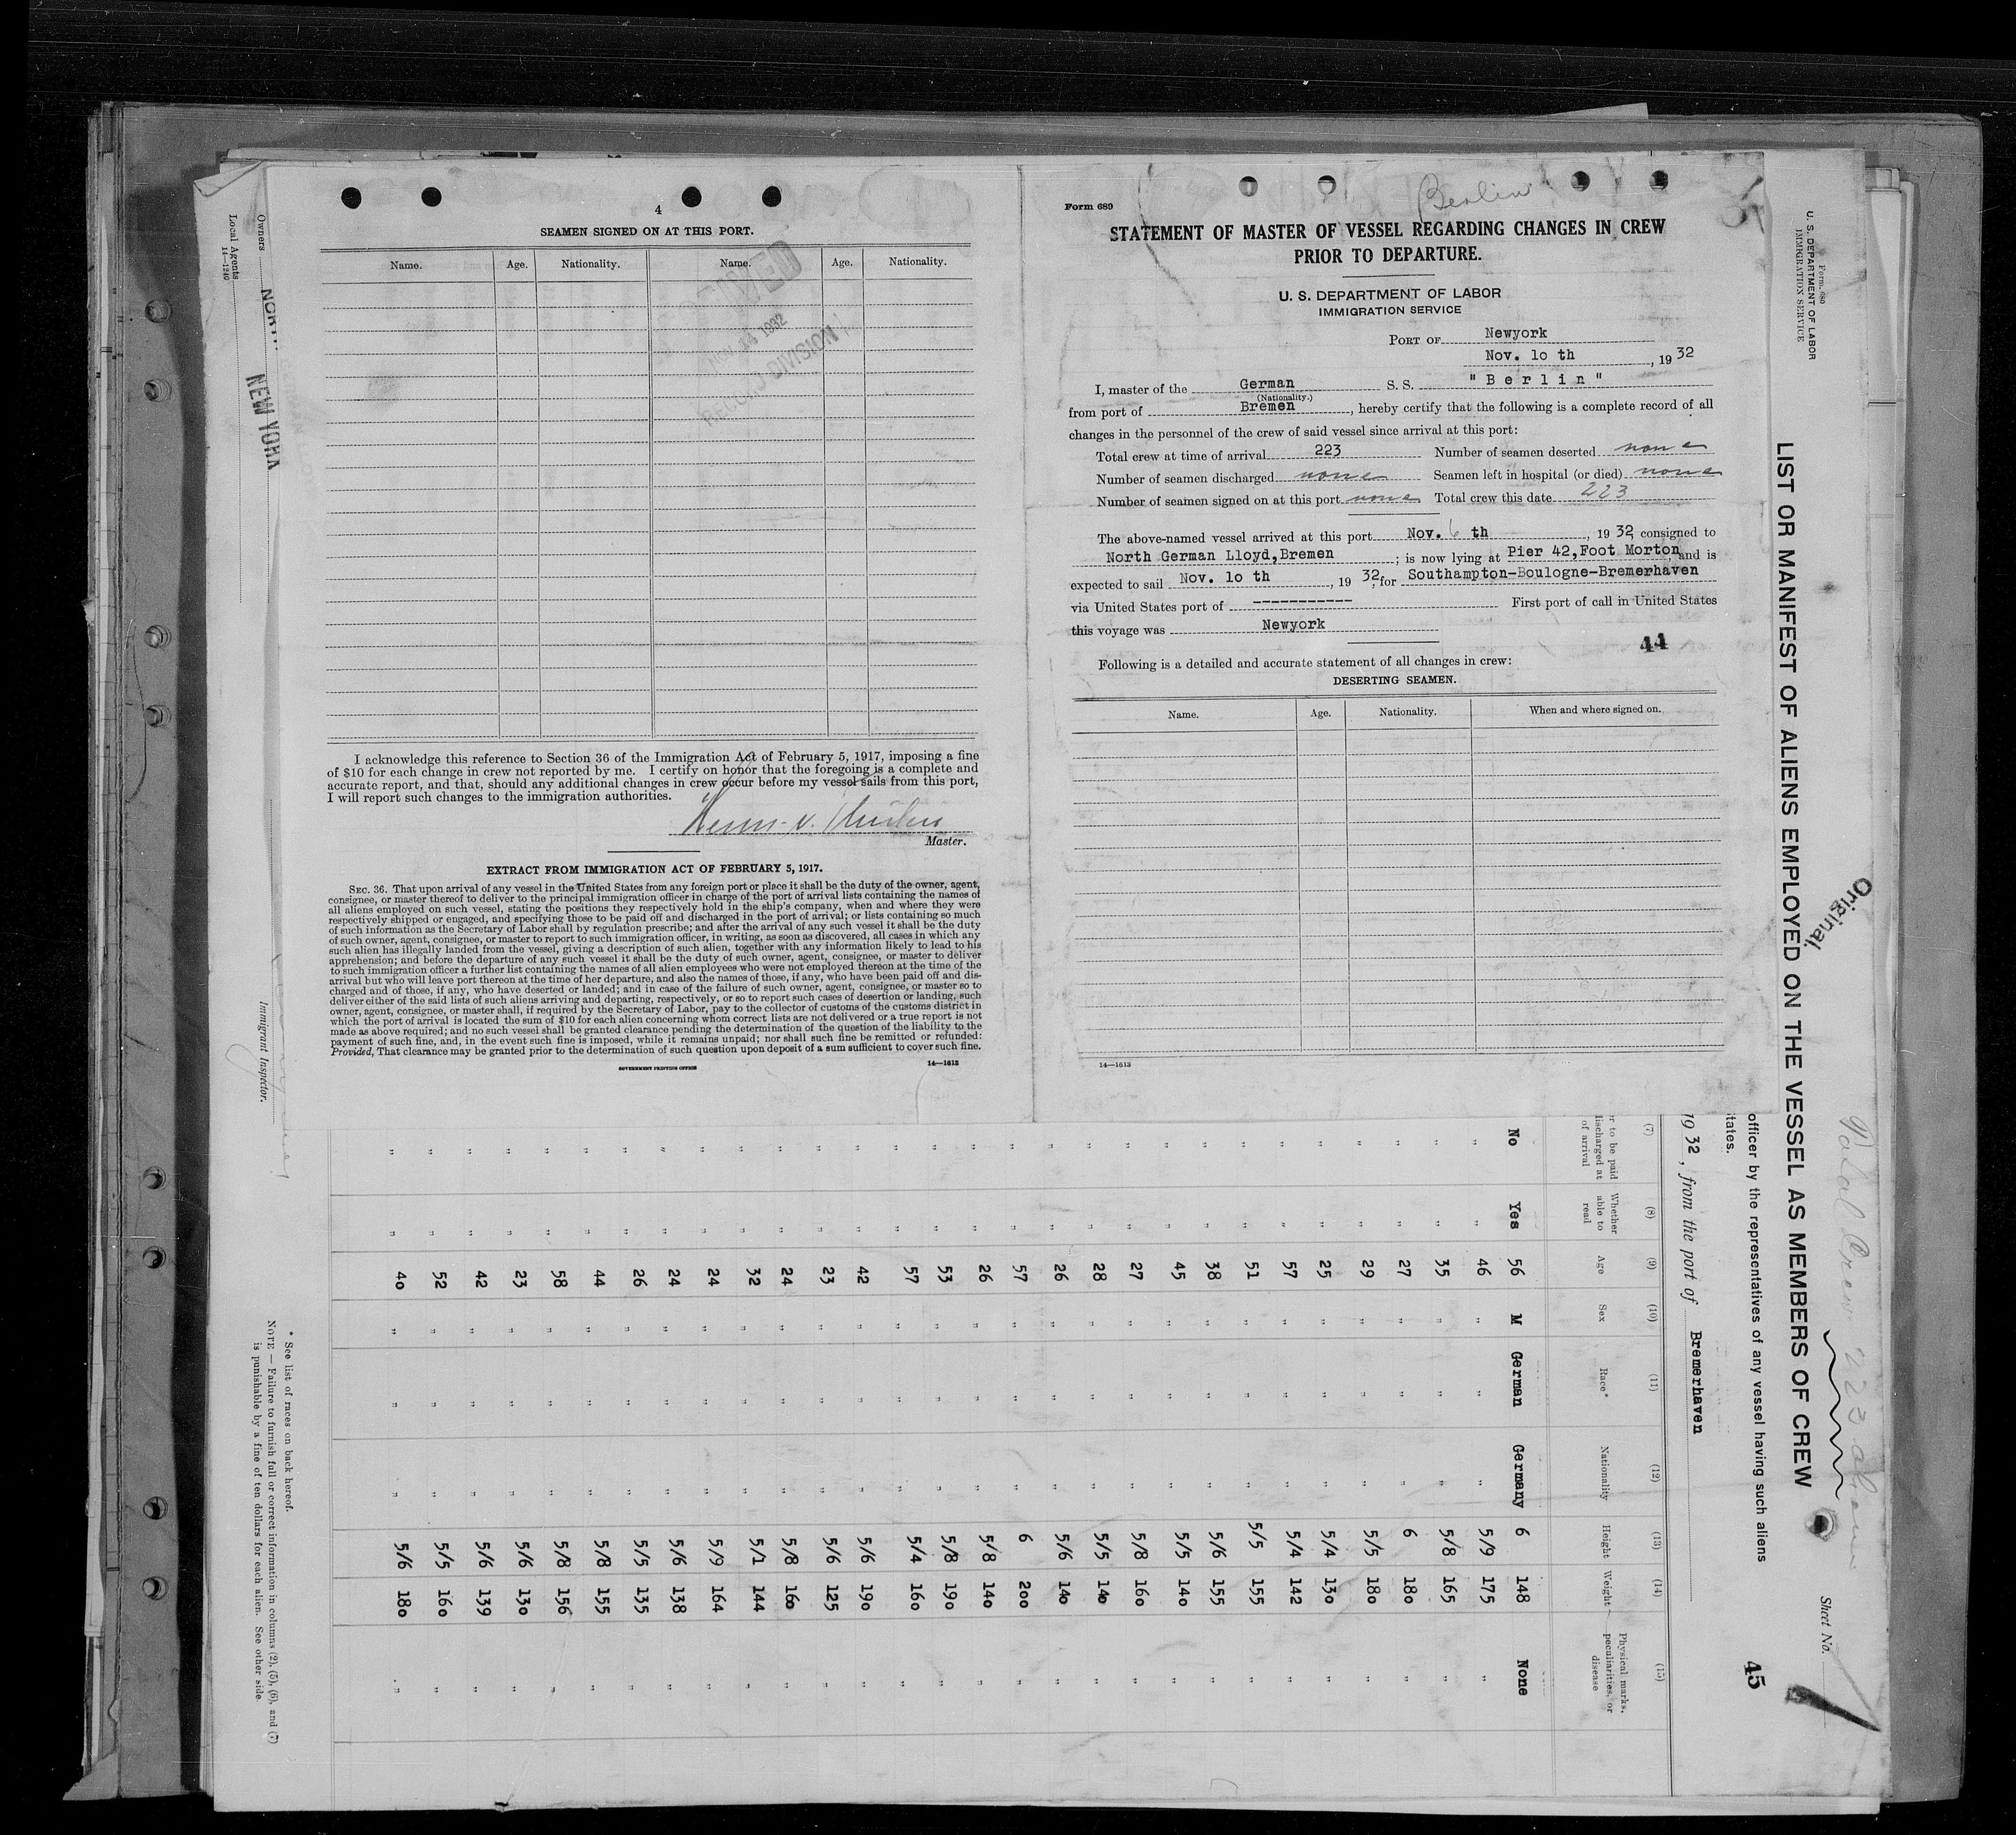 4
SEAMEN SIGNED ON AT THIS PORT.
Name. Age. Nationality. Name. Age. Nationality.
1932
RECORD DIVISION
I acknowledge this reference to Section 36 of the Immigration Act of February 5, 1917, imposing a fine
of $10 for each change in crew not reported by me. I certify on honor that the foregoing is a complete and
accurate report, and that, should any additional changes in crew occur before my vessel sails from this port,
I will report such changes to the immigration authorities.
Master.
EXTRACT FROM IMMIGRATION ACT OF FEBRUARY 5, 1917.
SEC. 36. That upon arrival of any vessel in the United States from any foreign port or place it shall be the duty of the owner, agent,
consignee, or master thereof to deliver to the principal immigration officer in charge of the port of arrival lists containing the names of
all aliens employed on such vessel, stating the positions they respectively hold in the ship's company, when and where they were
respectively shipped or engaged, and specifying those to be paid off and discharged in the port of arrival; or lists containing so much
of such information as the Secretary of Labor shall by regulation prescribe; and after the arrival of any such vessel it shall be the duty
of such owner, agent, consignee, or master to report to such immigration officer, in writing, as soon as discovered, all cases in which any
such alien has illegally landed from the vessel, giving a description of such alien, together with any information likely to lead to his
apprehension; and before the departure of any such vessel it shall be the duty of such owner, agent, consignee, or master to deliver
to such immigration officer a further list containing the names of all alien employees who were not employed thereon at the time of the
arrival but who will leave port thereon at the time of her departure, and also the names of those, if any, who have been paid off and dis-
charged and of those, if any, who have deserted or landed; and in case of the failure of such owner, agent, consignee, or master so to
deliver either of the said lists of such aliens arriving and departing, respectively, or so to report such cases of desertion or landing, such
owner, agent, consignee, or master shall, if required by the Secretary of Labor, pay to the collector of customs of the customs district in
which the port of arrival is located the sum of $10 for each alien concerning whom correct lists are not delivered or a true report is not
made as above required; and no such vessel shall be granted clearance pending the determination of the question of the liability to the
payment of such fine, and, in the event such fine is imposed, while it remains unpaid; nor shall such fine be remitted or refunded:
Provided, That clearance may be granted prior to the determination of such question upon deposit of a sum sufficient to cover such fine.
GOVERNMENT PRINTING OFFICE 14—1613
Berlin
Form 689
STATEMENT OF MASTER OF VESSEL REGARDING CHANGES IN CREW
PRIOR TO DEPARTURE.
U. S. DEPARTMENT OF LABOR
IMMIGRATION SERVICE
PORT OF Newyork
Nov. 1o th, 1932
I, master of the German S. S. "Berlin"
(Nationality.)
from port of Bremen, hereby certify that the following is a complete record of all
changes in the personnel of the crew of said vessel since arrival at this port:
Total crew at time of arrival 223 Number of seamen deserted none
Number of seamen discharged none Seamen left in hospital (or died) none
Number of seamen signed on at this port none Total crew this date 223
The above-named vessel arrived at this port Nov. 6 th, 1932, consigned to
North German Lloyd,Bremen; is now lying at Pier 42,Foot Morton, and is
expected to sail Nov. 1o th, 1932, for Southampton-Boulogne-Bremerhaven
via United States port of ----------- First port of call in United States
this voyage was Newyork
44
Following is a detailed and accurate statement of all changes in crew:
DESERTING SEAMEN.
Name. Age. Nationality. When and where signed on.
14—1613
Form 680
U. S. DEPARTMENT OF LABOR
IMMIGRATION SERVICE
LIST OR MANIFEST OF ALIENS EMPLOYED ON THE VESSEL AS MEMBERS OF CREW
Original
Total Crew 223 aliens
Sheet No.
45
officer by the representatives of any vessel having such aliens
tates.
1932, from the port of Bremerhaven
(7) (8) (9) (10) (11) (12) (13) (14) (15)
r to be paid discharged at of arrival Whether able to read Age Sex Race* Nationality Height Weight Physical marks, peculiarities, or disease
No Yes 56 M German Germany 6 148 None
" " 46 " " " 5/9 175 "
" " 35 " " " 5/8 165 "
" " 27 " " " 6 180 "
" " 29 " " " 5/5 180 "
" " 25 " " " 5/4 130 "
" " 57 " " " 5/4 142 "
" " 51 " " " 5/5 155 "
" " 38 " " " 5/6 155 "
" " 45 " " " 5/5 140 "
" " 27 " " " 5/8 160 "
" " 28 " " " 5/5 140 "
" " 26 " " " 5/6 140 "
" " 57 " " " 6 200 "
" " 26 " " " 5/8 140 "
" " 53 " " " 5/8 190 "
" " 57 " " " 5/4 160 "
" " 42 " " " 5/6 190 "
" " 23 " " " 5/6 125 "
" " 24 " " " 5/8 160 "
" " 32 " " " 5/1 144 "
" " 24 " " " 5/9 164 "
" " 24 " " " 5/6 138 "
" " 26 " " " 5/5 135 "
" " 44 " " " 5/8 155 "
" " 58 " " " 5/8 156 "
" " 23 " " " 5/6 130 "
" " 42 " " " 5/6 139 "
" " 52 " " " 5/5 160 "
" " 40 " " " 5/6 180 "
* See list of races on back hereof.
NOTE — Failure to furnish full or correct information in columns (2), (5), (6), and (7)
is punishable by a fine of ten dollars for each alien. See other side.
Immigrant Inspector.
Owners
NORTH
Local Agents
NEW YORK
14—1240